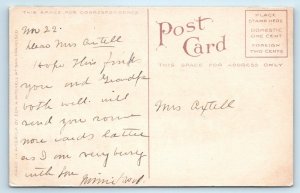 THIS SPACE FOR CORRESPONDENCE
Nov 22.
Dear Mrs Axtell
Hope this finds
you and Grandpa
both well. will
send you some
more cards latter
as I am very busy
with
Post Card
THIS SPACE FOR ADDRESS ONLY
PLACE
STAMP HERE
DOMESTIC
ONE CENT
FOREIGN
TWO CENTS
Mrs Axtell